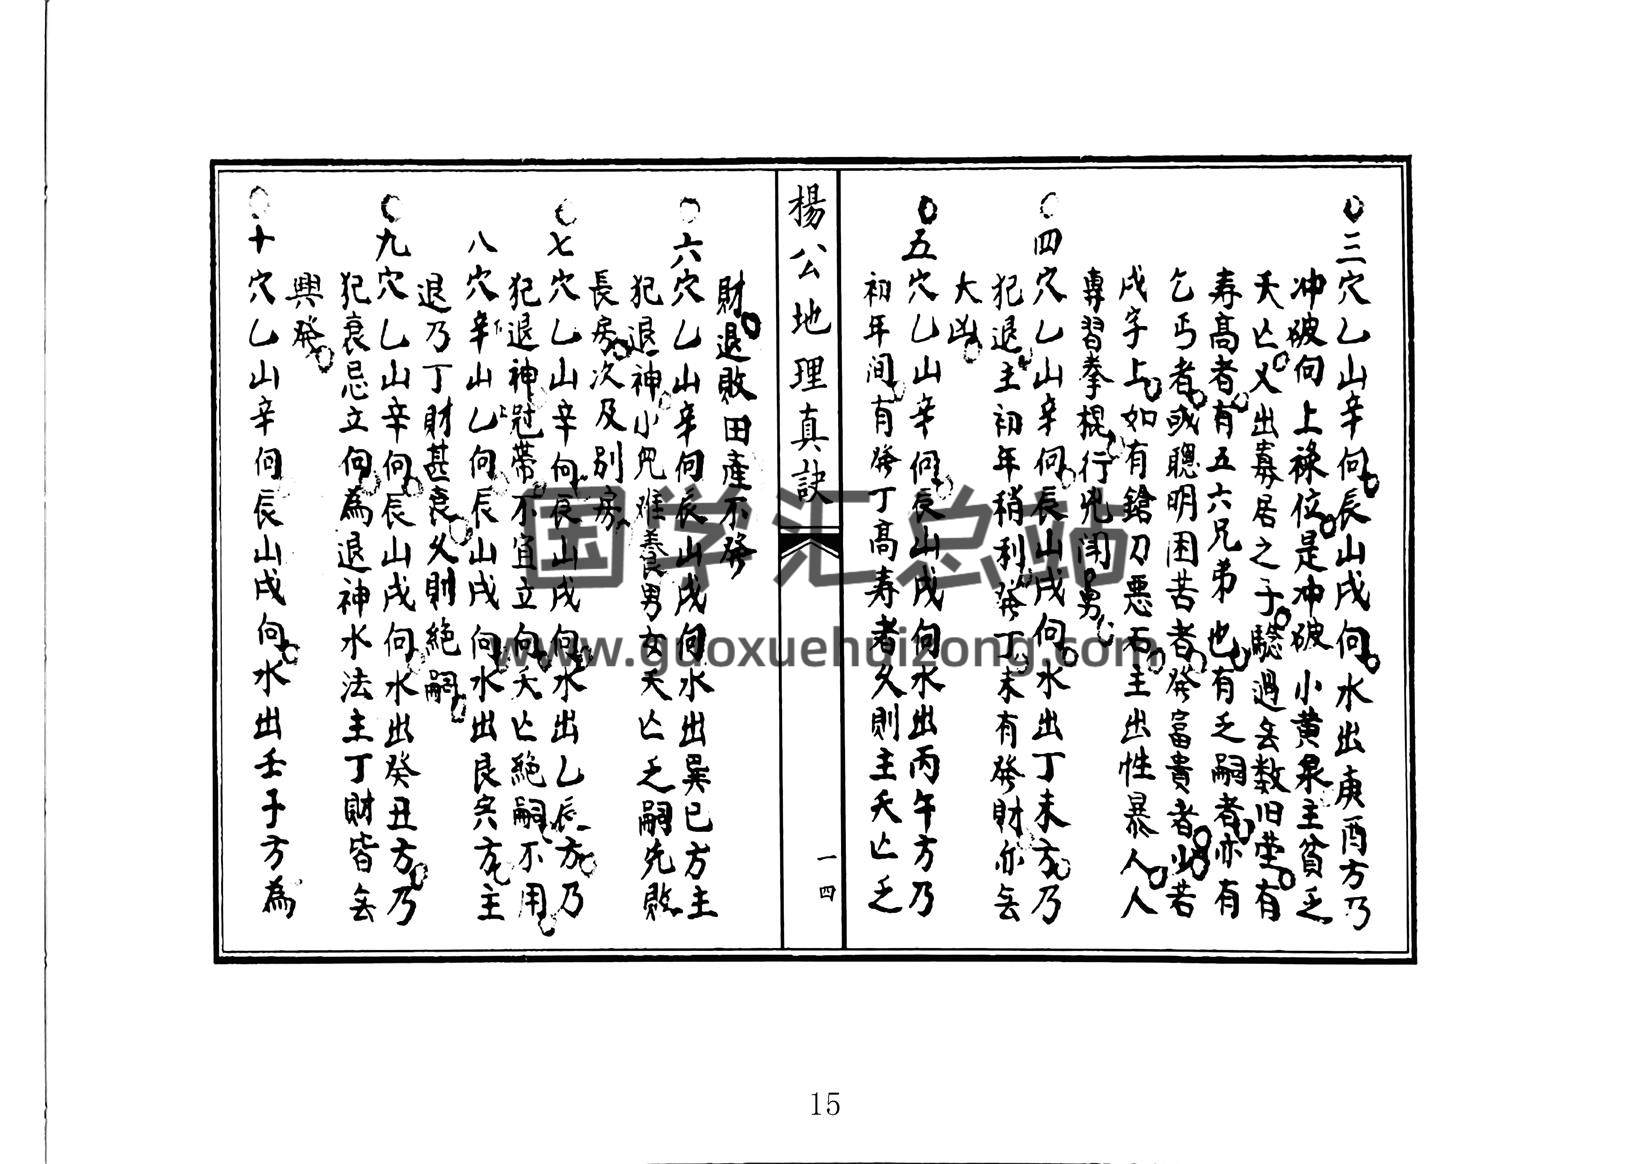 三穴乙山辛向辰山戌向水出庚酉方乃
冲破向上祿位是冲破小黄泉主貧乏
夭亡又出寡居之子騐過无数旧塋有
寿高者有五六兄弟也有乏嗣者亦有
乞丐者或聰明困苦者發富貴者少若
戌字上如有鎗刀惡石主出性暴人人
專習拳棍行兇閗勇
四穴乙山辛向辰山戌向水出丁未方乃
犯退主初年稍利發丁未有發財亦无
大凶
五穴乙山辛向辰山戌向水出丙午方乃
初年间有發丁高寿者久則主夭亡乏
楊公地理真訣
一四
財退敗田產不發
六穴乙山辛向辰山戌向水出巽巳方主
犯退神小兒难養男女夭亡乏嗣先敗
長房次及别房
七穴乙山辛向辰山戌向水出乙辰方乃
犯退神冠帶不宜立向夭亡絶嗣不用
八穴辛山乙向辰山戌向水出艮寅方主
退乃丁財甚衰久則絶嗣
九穴乙山辛向辰山戌向水出癸丑方乃
犯衰忌立向為退神水法主丁財皆无
興發
十穴乙山辛向辰山戌向水出壬子方為
国学汇总站
www.guoxuehuizong.com
15